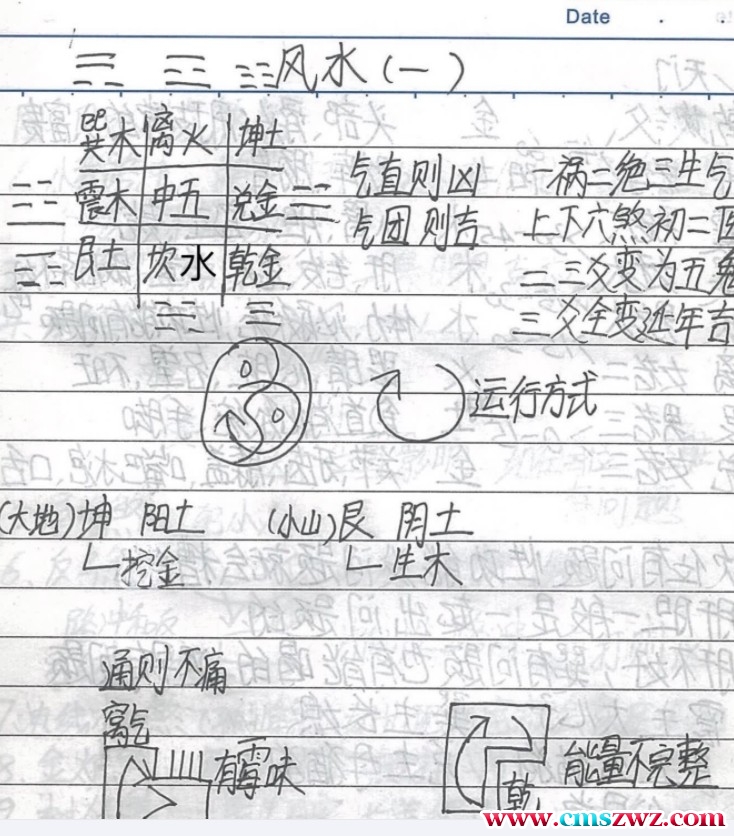 Date
风水(一)
巽木 离火 坤土
震木 中五 兑金
艮土 坎水 乾金
气直则凶 一祸二绝三生气
气团则吉 上下六煞初二
二三爻变为五鬼
三爻全变延年吉
运行方式
(大地)坤 阳土 (小山)艮 阴土
挖金 生木
通则不痛
离气
有霉味
乾
能量不完整
www.cmszwz.com